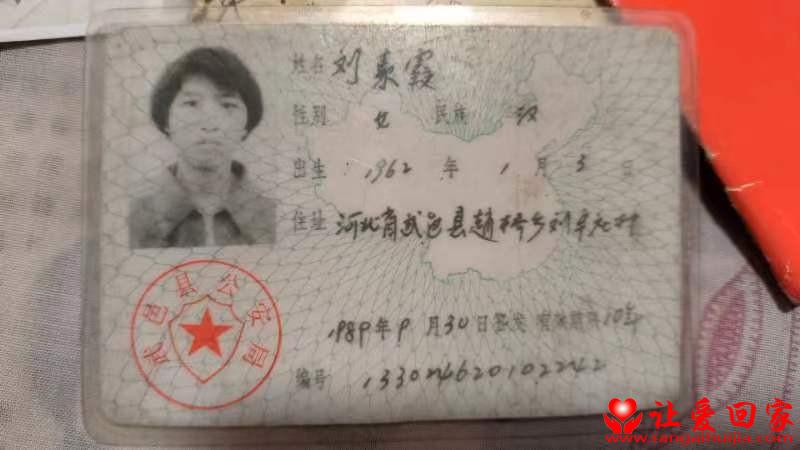 姓名 刘东霞
性别 女 民族 汉
出生 1962 年 1 月 3 日
住址 河北省武邑县赵桥乡刘平庄村
1989年9月30日签发 有效期限10年
编号
武邑县公安局
让爱回家